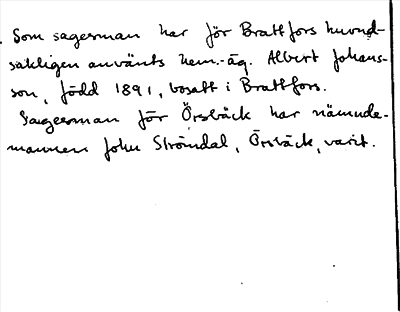 Som sagesman har för Brattfors huvud-
sakligen använts hem.-äg. Albert Johans-
son, född 1891, bosatt i Brattfors.
Sagesman för Örsbäck har nämnde-
mannen John Strömdal, Örsbäck, varit.